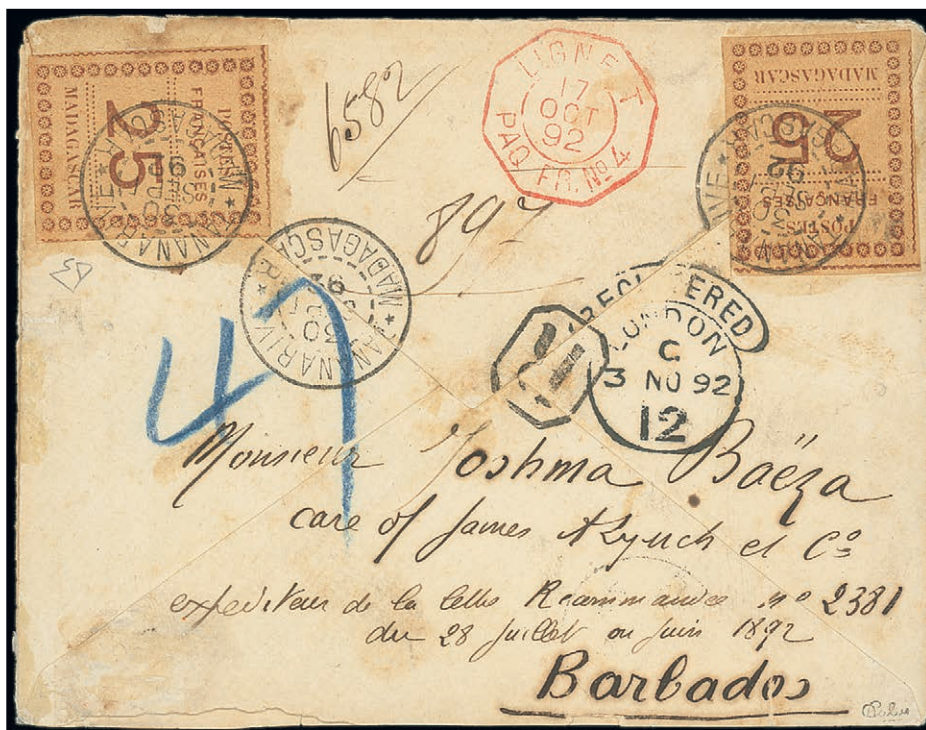 POSTES
FRANÇAISES
25
MADAGASCAR
6582
LIGNE T
17
OCT
92
PAQ. FR. No 4
POSTES
FRANÇAISES
25
MADAGASCAR
MADAGASCAR
92
R
REGISTERED
LONDON
C
3 NO 92
12
47
Monsieur Joshma Baëza
care of James A Lynch et Co
expediteur de la lettre Recommandée no 2381
du 28 Juillet ou Juin 1892
Barbados